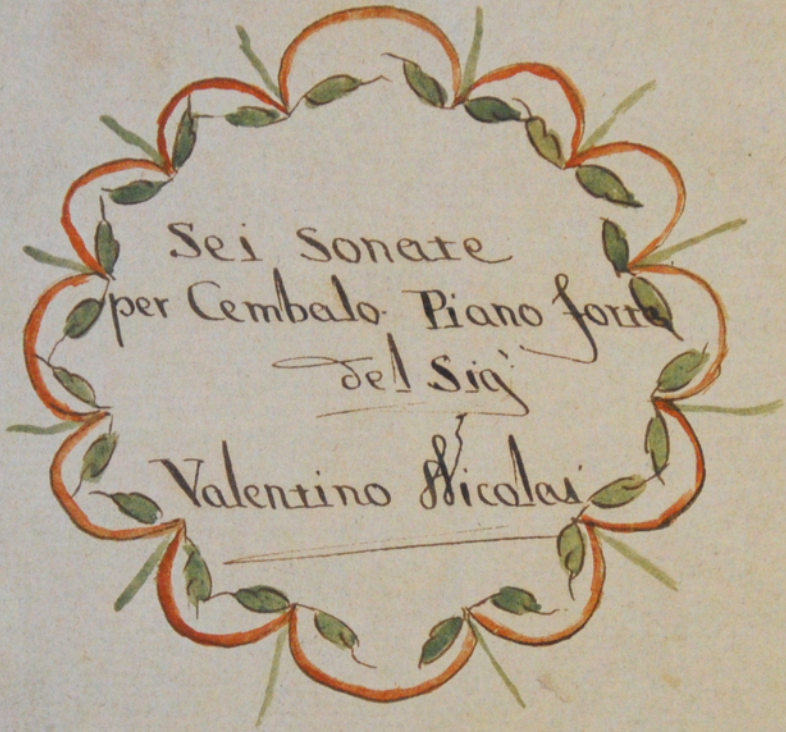 Sei Sonate
per Cembalo. Piano forte
del Sigˊ
Valentino Nicolai